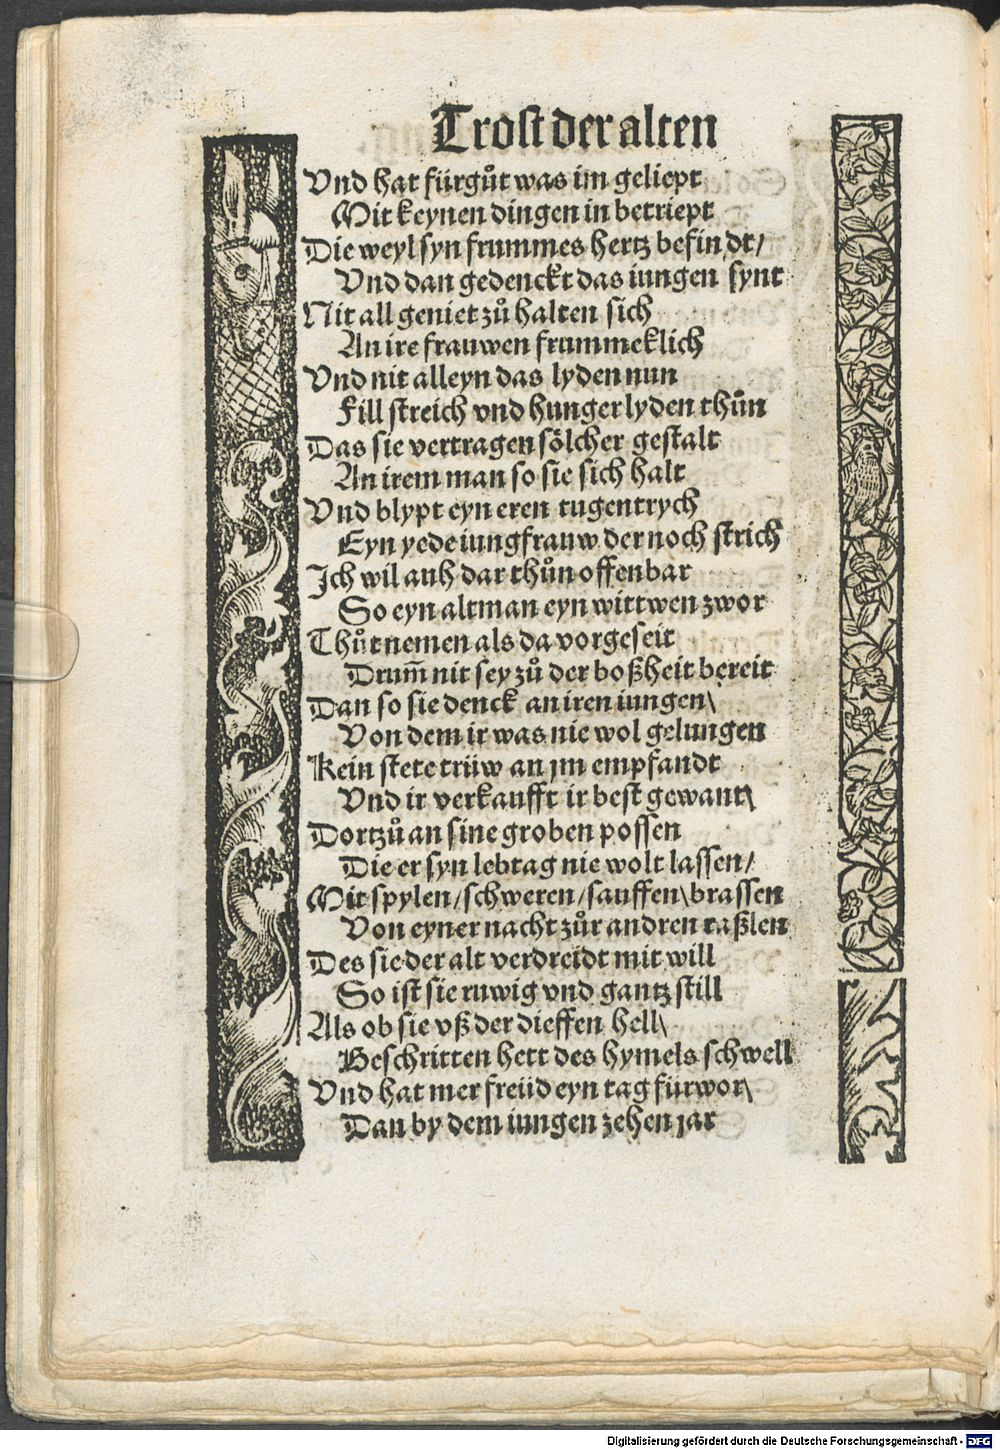 Trost der alten
Vnd hat fürgůt was im geliept
Mit keynen dingen in betriept
Die weyl syn frummes hertz befindt/
Vnd dan gedenckt das iungen synt
Nit all geniet zů halten sich
An ire frauwen frummeklich
Vnd nit alleyn das lyden nun
Fill streich vnd hunger lyden thůn
Das sie vertragen sölcher gestalt
An irem man so sie sich halt
Vnd blypt eyn eren tugentrych
Eyn yede iungfrauw der noch strich
Ich wil auh dar thůn offenbar
So eyn altman eyn wittwen zwor
Thůt nemen als da vorgeseit
Drum̄ nit sey zů der boßheit bereit
Dan so sie denck an iren iungen\
Von dem ir was nie wol gelungen
Kein stete trüw an jm empfandt
Vnd ir verkaufft ir best gewant\
Dortzů an sine groben possen
Die er syn lebtag nie wolt lassen/
Mit spylen/schweren/sauffen\brassen
Von eyner nacht zůr andren raßlen
Des sie der alt verdreidt mit will
So ist sie ruwig vnd gantz still
Als ob sie vß der dieffen hell\
Beschritten hett des hymels schwell
Vnd hat mer freüd eyn tag fürwor\
Dan by dem iungen zehen jar
Digitalisierung gefördert durch die Deutsche Forschungsgemeinschaft - DFG